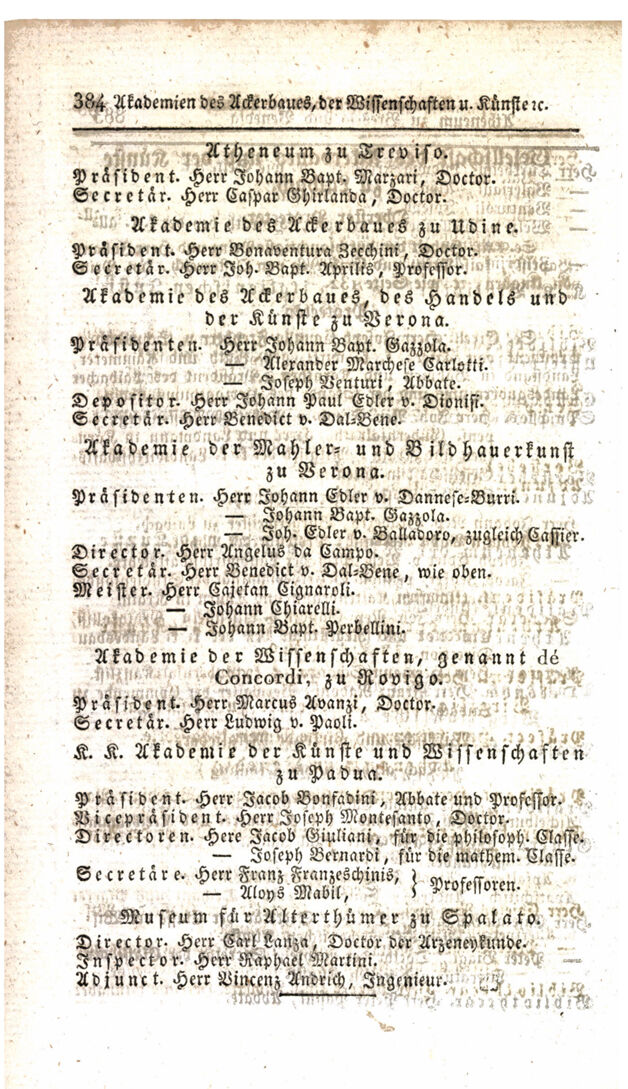 384 Akademien des Ackerbaues, der Wissenschaften u. Künste ꝛc.
Atheneum zu Treviso.
Präsident. Herr Johann Bapt. Marzari, Doctor.
Secretär. Herr Caspar Ghirlanda, Doctor.
Akademie des Ackerbaues zu Udine.
Präsident. Herr Bonaventura Zecchini, Doctor.
Secretär. Herr Joh. Bapt. Aprilis, Professor.
Akademie des Ackerbaues, des Handels und
der Künste zu Verona.
Präsidenten. Herr Johann Bapt. Gazzola.
— Alexander Marchese Carlotti.
— Joseph Venturi, Abbate.
Depositor. Herr Johann Paul Edler v. Dionisi.
Secretär. Herr Benedict v. Dal-Bene.
Akademie der Mahler- und Bildhauerkunst
zu Verona.
Präsidenten. Herr Johann Edler v. Dannese-Burri.
— Johann Bapt. Gazzola.
— Joh. Edler v. Balladoro, zugleich Cassier.
Director. Herr Angelus da Campo.
Secretär. Herr Benedict v. Dal-Bene, wie oben.
Meister. Herr Cajetan Cignaroli.
— Johann Chiarelli.
— Johann Bapt. Perbellini.
Akademie der Wissenschaften, genannt dé
Concordi, zu Rovigo.
Präsident. Herr Marcus Avanzi, Doctor.
Secretär. Herr Ludwig v. Paoli.
K. K. Akademie der Künste und Wissenschaften
zu Padua.
Präsident. Herr Jacob Bonfadini, Abbate und Professor.
Vicepräsident. Herr Joseph Montesanto, Doctor.
Directoren. Here Jacob Giuliani, für die philosoph. Classe.
— Joseph Bernardi, für die mathem. Classe.
Secretäre. Herr Franz Franzeschinis, } Professoren.
— Aloys Mabil,
Museum für Alterthümer zu Spalato.
Director. Herr Carl Lanza, Doctor der Arzeneykunde.
Inspector. Herr Raphael Martini.
Adjunct. Herr Vincenz Andrich, Ingenieur.